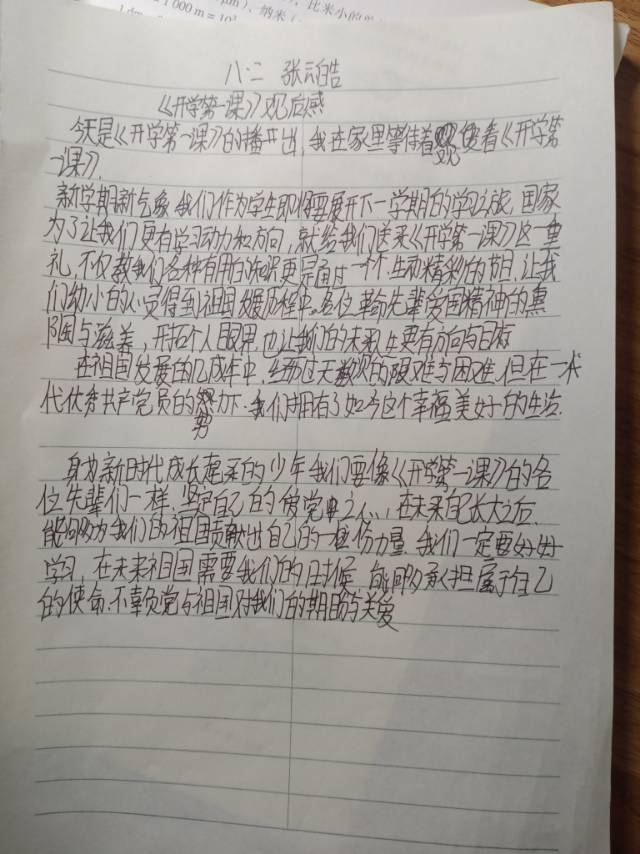 1000m=10³
、纳米(
比米小的
八.二 张云皓
《开学第一课》观后感
今天是《开学第一课》的播开出,我在家里等待着观使着《开学第
一课》.
新学期新气象,我们作为学生即将要展开下一学期的学习之旅,国家
为了让我们更有学习动力和方向,就给我们送来《开学第一课》这一重
礼,不仅教我们各种有用的知识更是通过一个个生动精彩的节目,让我
们幼小的心灵得到祖国发展历程中.各位革命先辈爱国精神的熏
陶与滋养,开拓个人眼界,也让我们的未来人生更有方向与目标
在祖国发展的几成年中,经历过无数次的艰难与困难,但在一代
代优秀共产党员的努力下.我们拥有了如今这个幸福美好的生活.
努
身为新时代成长起来的少年我们要像《开学第一课》的各
位先辈们一样,坚定自己的爱党之心,在未来自己长大之后,
能够为我们的祖国贡献出自己的一份力量.我们一定要好好
学习,在未来祖国需要我们的时候,能够承担属于自己
的使命.不辜负党与祖国对我们的期盼与关爱